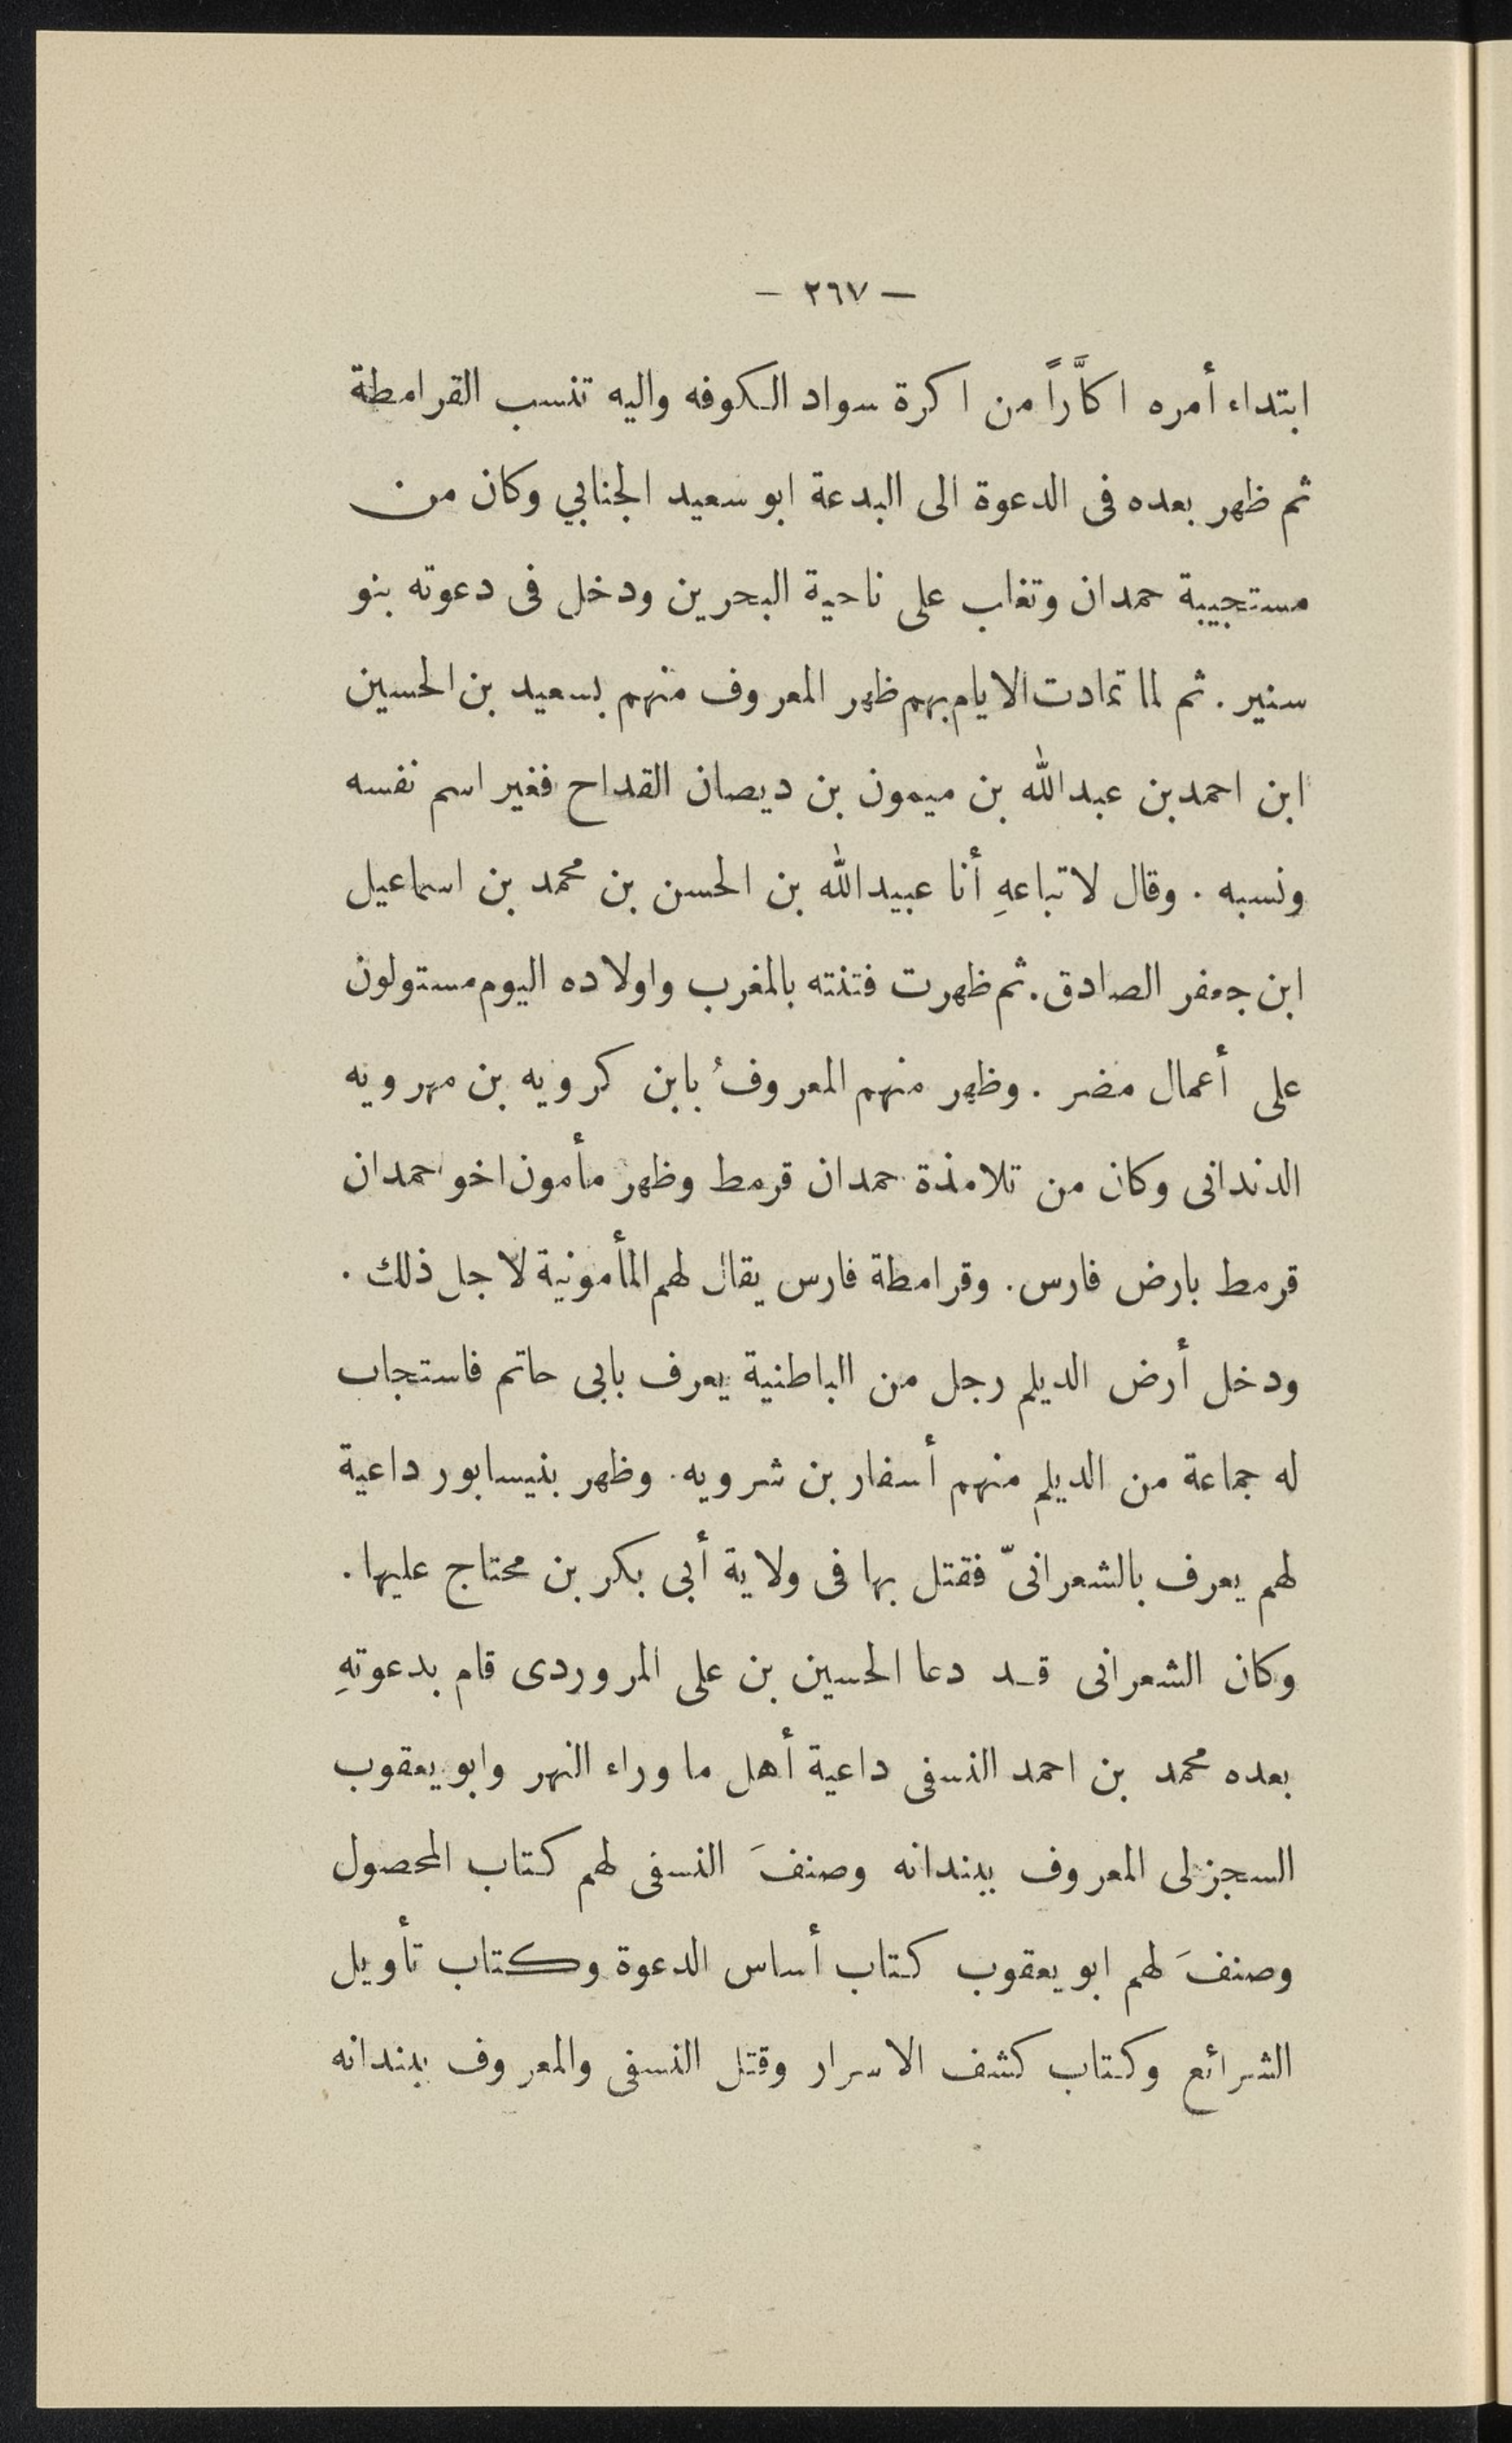 — ٢٦٧ —
ابتداء أمره اكَّاراً من اكرة سواد الكوفه واليه تنسب القرامطة
ثم ظهر بعده فى الدعوة الى البدعة ابو سعيد الجنابي وكان من
مستجيبة حمدان وتغاب على ناحية البحرين ودخل فى دعوته بنو
سنير . ثم لما تمادت الايام بهم ظهر المعروف منهم بسعيد بن الحسين
ابن احمد بن عبدالله بن ميمون بن ديصان القداح فغير اسم نفسه
ونسبه . وقال لاتباعهِ أنا عبيدالله بن الحسن بن محمد بن اسماعيل
ابن جعفر الصادق . ثم ظهرت فتنته بالمغرب واولاده اليوم مستولون
على أعمال مضر . وظهر منهم المعروفُ بابن كرويه بن مهرويه
الدندانى وكان من تلامذة حمدان قرمط وظهر مأمون اخو حمدان
قرمط بارض فارس . وقرامطة فارس يقال لهم المأمونية لاجل ذلك .
ودخل أرض الديلم رجل من الباطنية يعرف بابى حاتم فاستجاب
له جماعة من الديلم منهم أسفار بن شرويه . وظهر بنيسابور داعية
لهم يعرف بالشعرانىّ فقتل بها فى ولاية أبى بكر بن محتاج عليها .
وكان الشعرانى قد دعا الحسين بن على المروردى قام بدعوتهِ
بعده محمد بن احمد النسفى داعية أهل ما وراء النهر وابو يعقوب
السجزلى المعروف ببندانه وصنفَ النسفى لهم كتاب المحصول
وصنفَ لهم ابو يعقوب كتاب أساس الدعوة وكتاب تأويل
الشرائع وكتاب كشف الاسرار وقتل النسفى والمعروف ببندانه